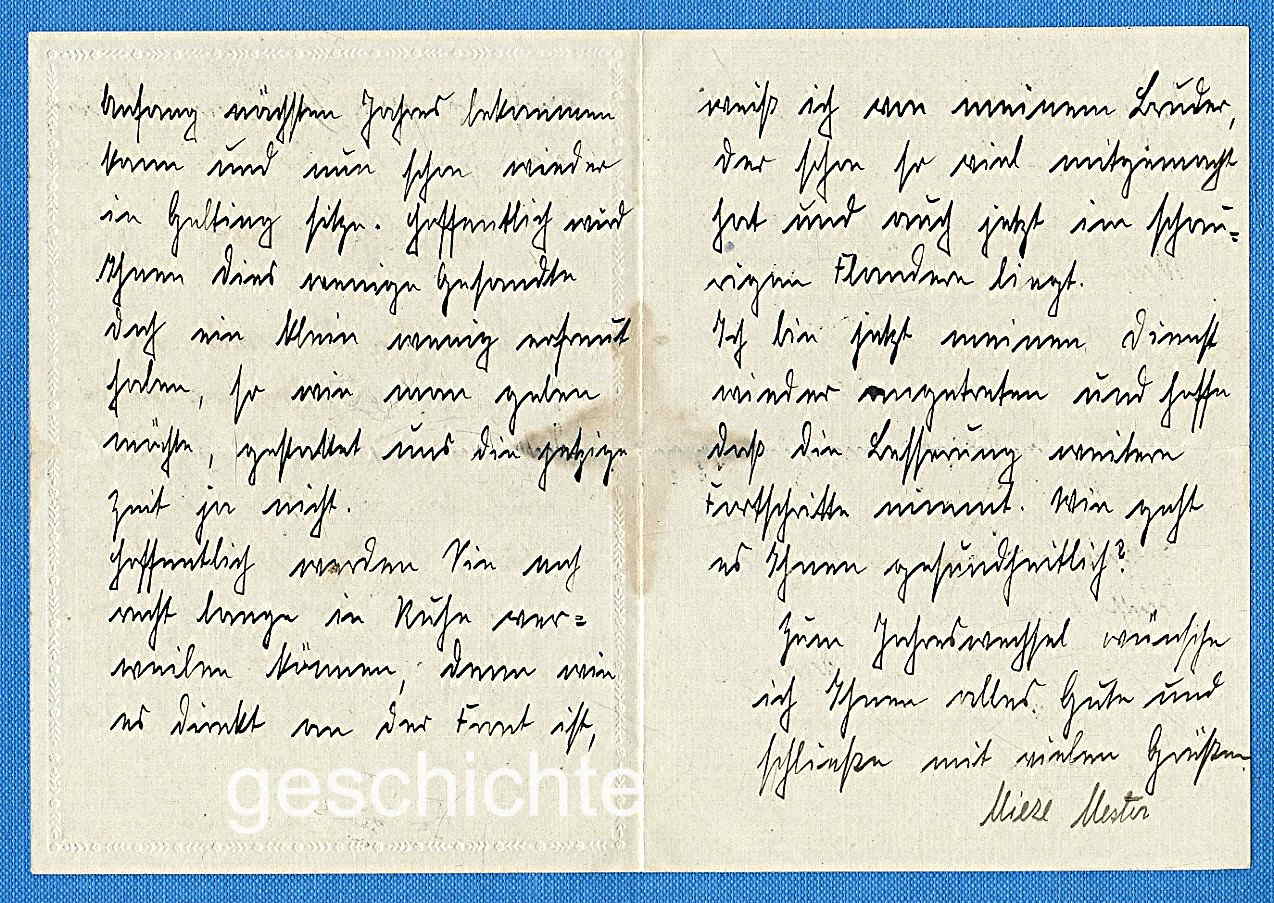 Anfang nächsten Jahres bekommen
kann und nun schon wieder
in Gelting sitze. Hoffentlich wird
Ihnen dies wenige Gesandte
doch ein klein wenig erfreut
haben, so wie man geben
möchte, gestattet uns die jetzige
Zeit ja nicht.
Hoffentlich werden Sie noch
recht lange in Ruhe ver=
weilen können, denn wie
es direkt an der Front ist,
weiß ich von meinem Bruder,
der schon so viel mitgemacht
hat und auch jetzt im schau=
rigen Flandern liegt.
Ich bin jetzt meinen Dienst
wieder angetreten und hoffe
daß die Besserung weitere
Fortschritte nimmt. Wie geht
es Ihnen gesundheitlich?
Zum Jahreswechsel wünsche
ich Ihnen alles Gute und
schließe mit vielen Grüßen
Mieze Mester
geschichte